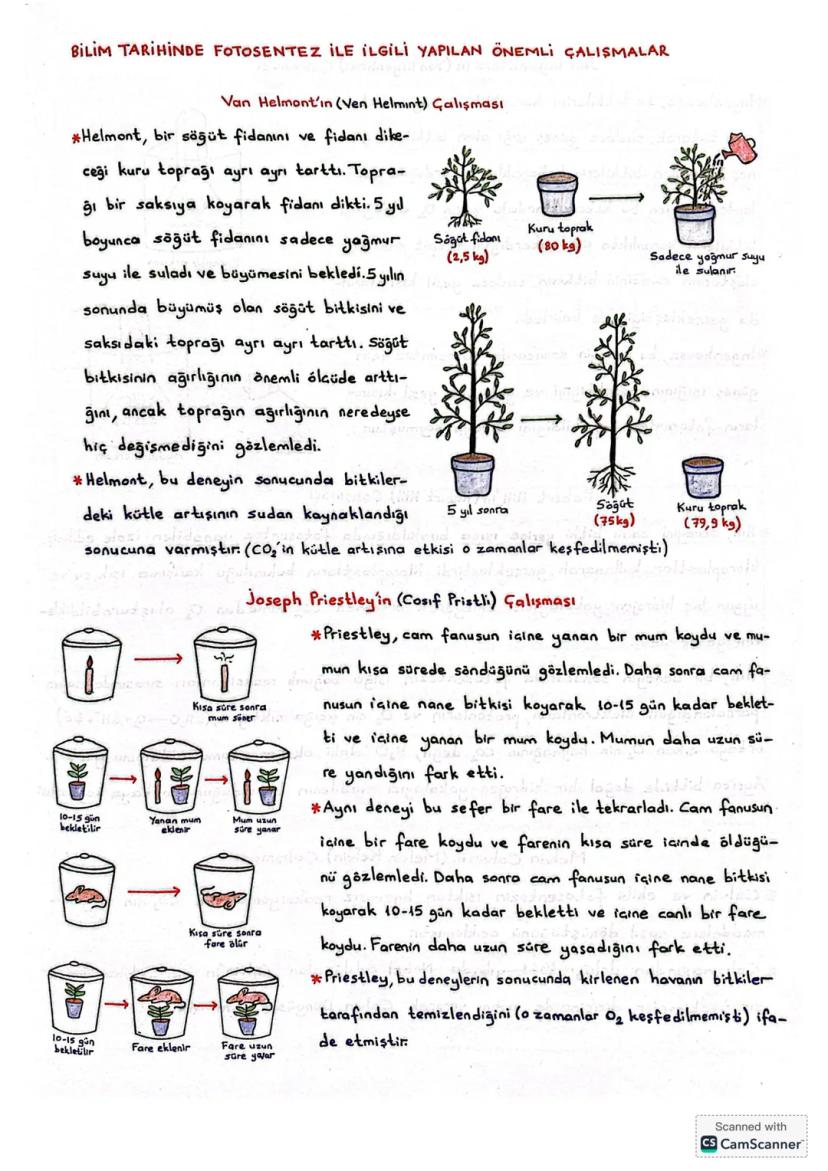 BİLİM TARİHİNDE FOTOSENTEZ İLE İLGİLİ YAPILAN ÖNEMLİ ÇALIŞMALAR
Van Helmont'ın (Ven Helmınt) Çalışması
*Helmont, bir söğüt fidanını ve fidanı dike-
ceği kuru toprağı ayrı ayrı tarttı. Topra-
ğı bir saksıya koyarak fidanı dikti. 5 yıl
boyunca söğüt fidanını sadece yağmur
suyu ile suladı ve büyümesini bekledi. 5 yılın
sonunda büyümüş olan söğüt bitkisini ve
saksıdaki toprağı ayrı ayrı tarttı. Söğüt
bitkisinin ağırlığının önemli ölçüde arttı-
ğını, ancak toprağın ağırlığının neredeyse
hiç değişmediğini gözlemledi.
*Helmont, bu deneyin sonucunda bitkiler-
deki kütle artışının sudan kaynaklandığı
sonucuna varmıştır. (CO₂'in kütle artışına etkisi o zamanlar keşfedilmemişti)
Söğüt fidanı
(2,5 kg)
Kuru toprak
(80 kg)
Sadece yağmur suyu
ile sulanır.
5 yıl sonra
Söğüt
(75kg)
Kuru toprak
(79,9 kg)
Joseph Priestley'in (Cosıf Pristli) Çalışması
*Priestley, cam fanusun içine yanan bir mum koydu ve mu-
mun kısa sürede söndüğünü gözlemledi. Daha sonra cam fa-
nusun içine nane bitkisi koyarak 10-15 gün kadar beklet-
ti ve içine yanan bir mum koydu. Mumun daha uzun sü-
re yandığını fark etti.
*Aynı deneyi bu sefer bir fare ile tekrarladı. Cam fanusun
içine bir fare koydu ve farenin kısa süre içinde öldüğü-
nü gözlemledi. Daha sonra cam fanusun içine nane bitkisi
koyarak 10-15 gün kadar bekletti ve içine canlı bir fare
koydu. Farenin daha uzun süre yaşadığını fark etti.
*Priestley, bu deneylerin sonucunda kirlenen havanın bitkiler
tarafından temizlendiğini (o zamanlar O₂ keşfedilmemişti) ifa-
de etmiştir.
Kısa süre sonra
mum söner
10-15 gün
bekletilir
Yanan mum
eklenir
Mum uzun
süre yanar
Kısa süre sonra
fare ölür
10-15 gün
bekletilir
Fare eklenir
Fare uzun
süre yaşar
Scanned with
CS CamScanner